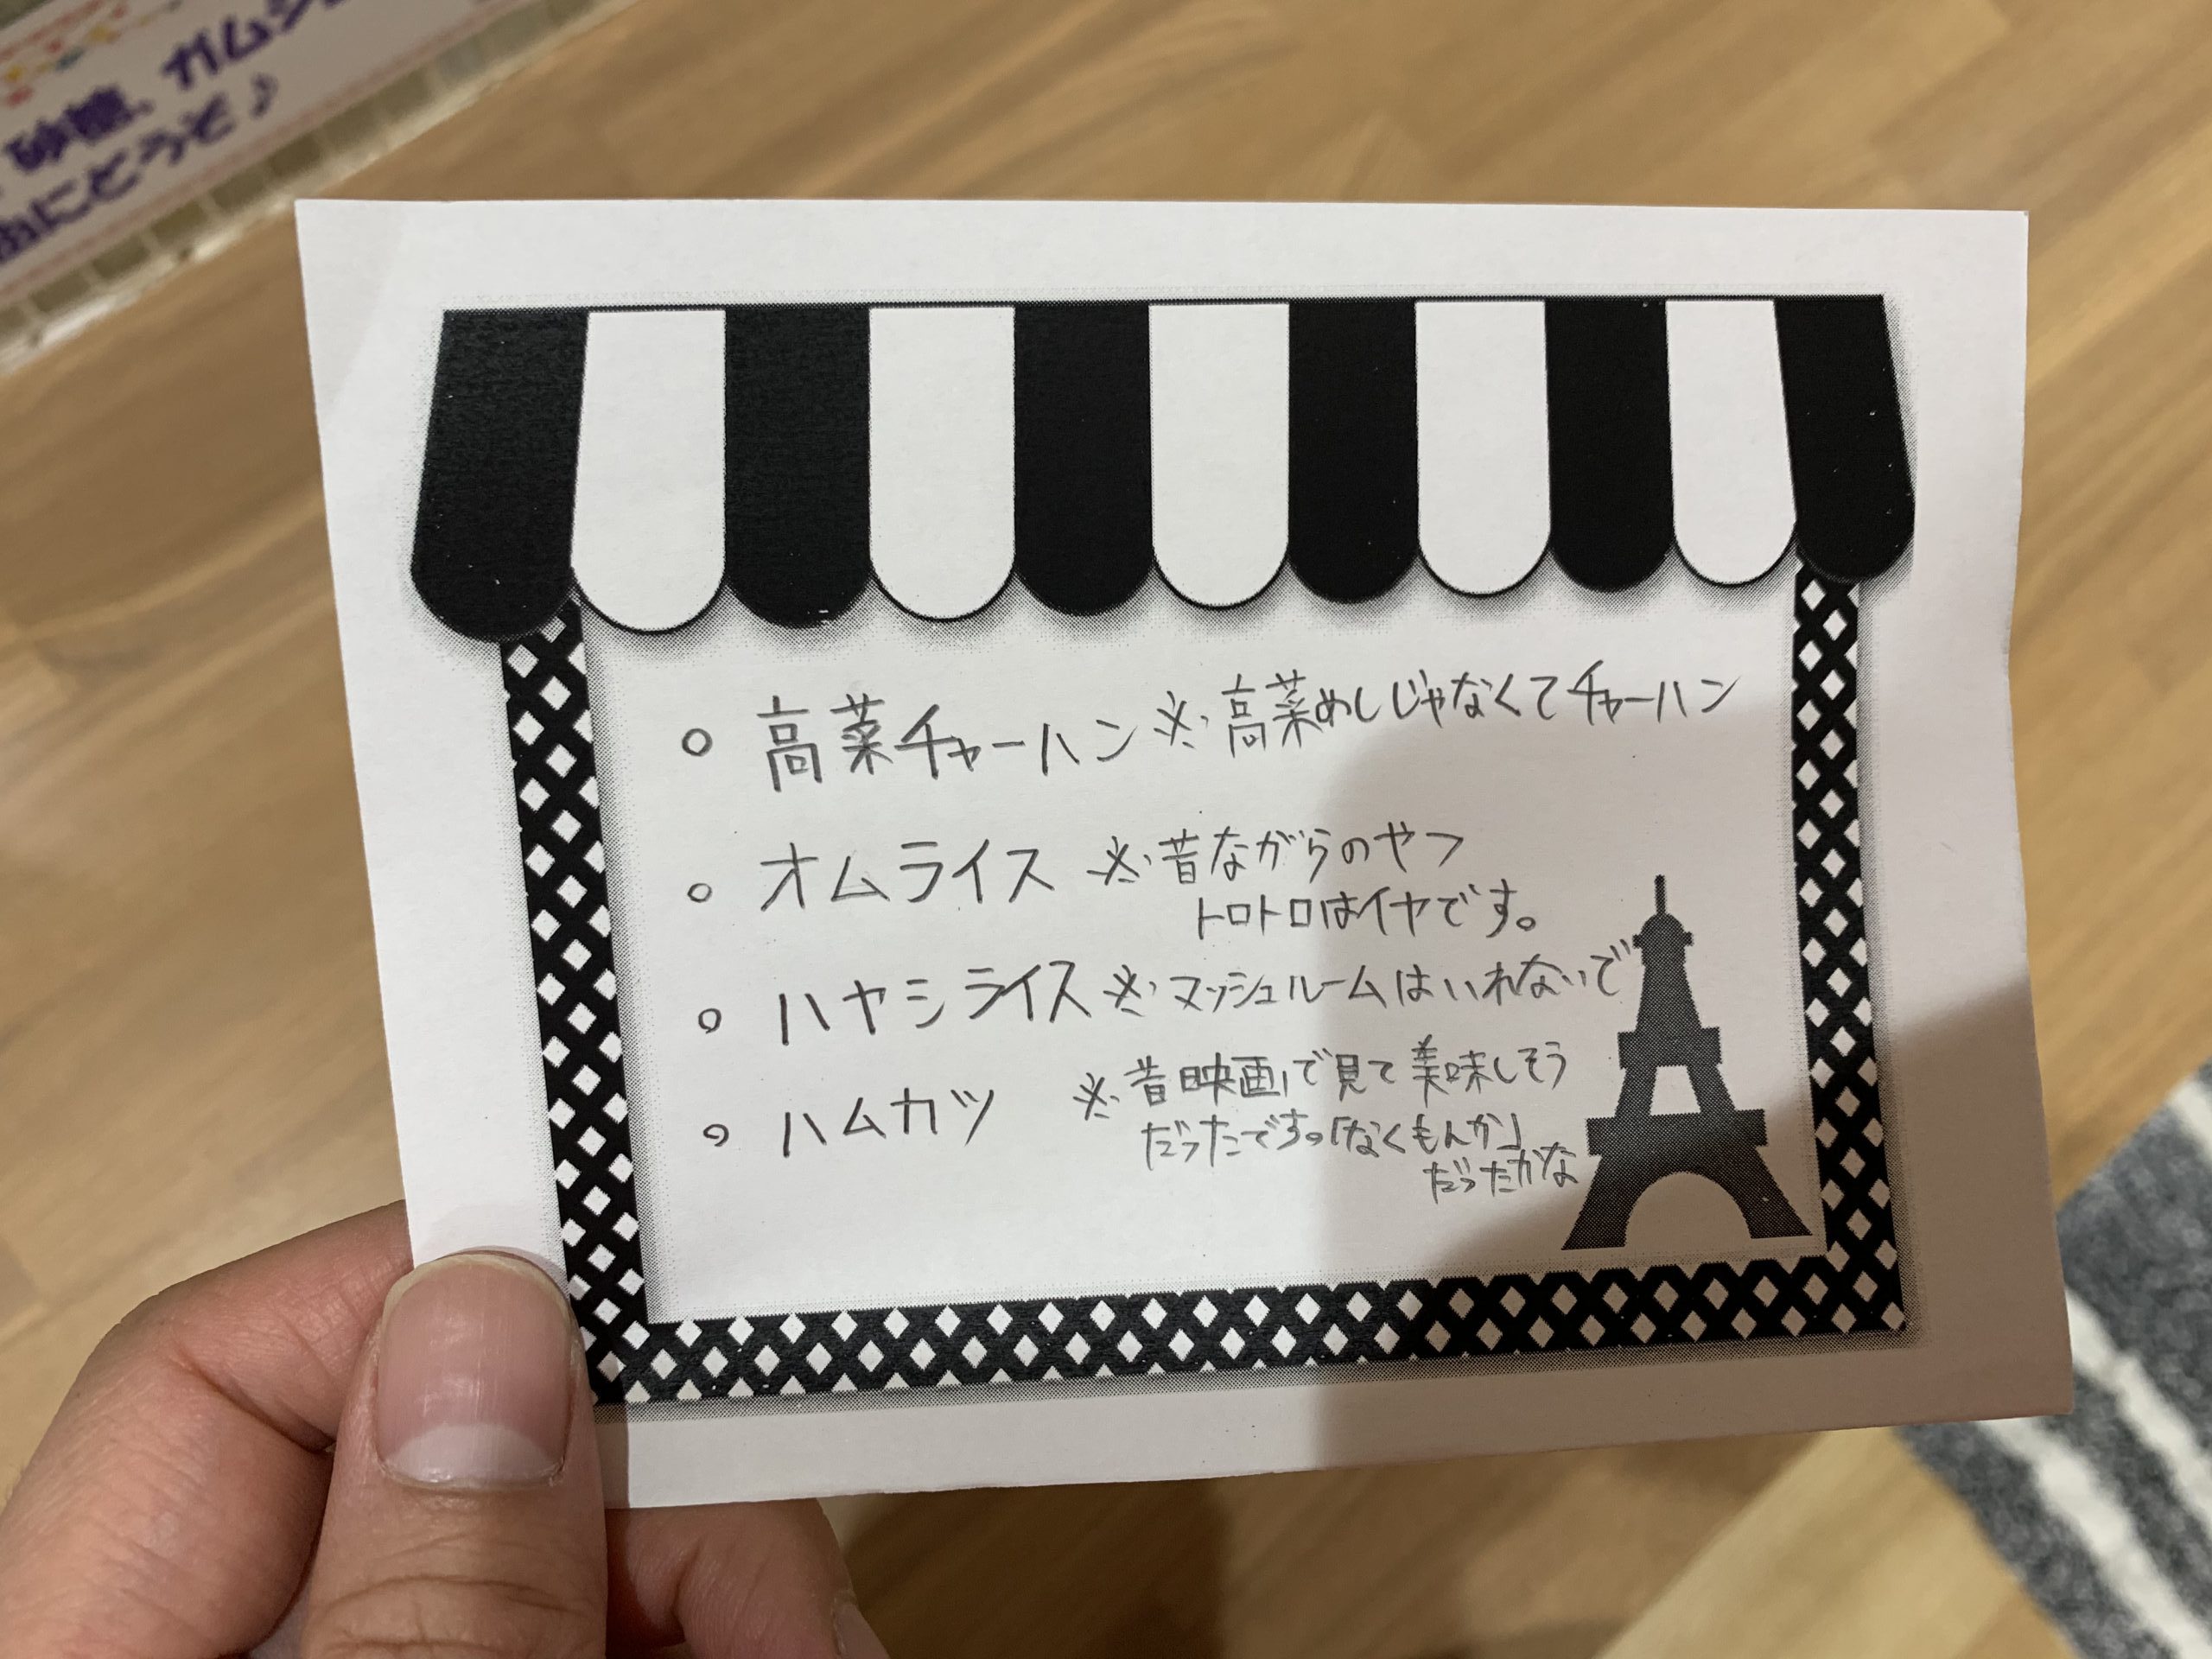 砂糖、ガムシ
にどうぞ♪
○ 高菜チャーハン ※高菜めしじゃなくてチャーハン
○ オムライス ※昔ながらのやつ
トロトロはイヤです。
○ ハヤシライス ※マッシュルームはいれないで
○ ハムカツ ※昔映画で見て美味しそう
だったです。「なくもんか」
だったかな